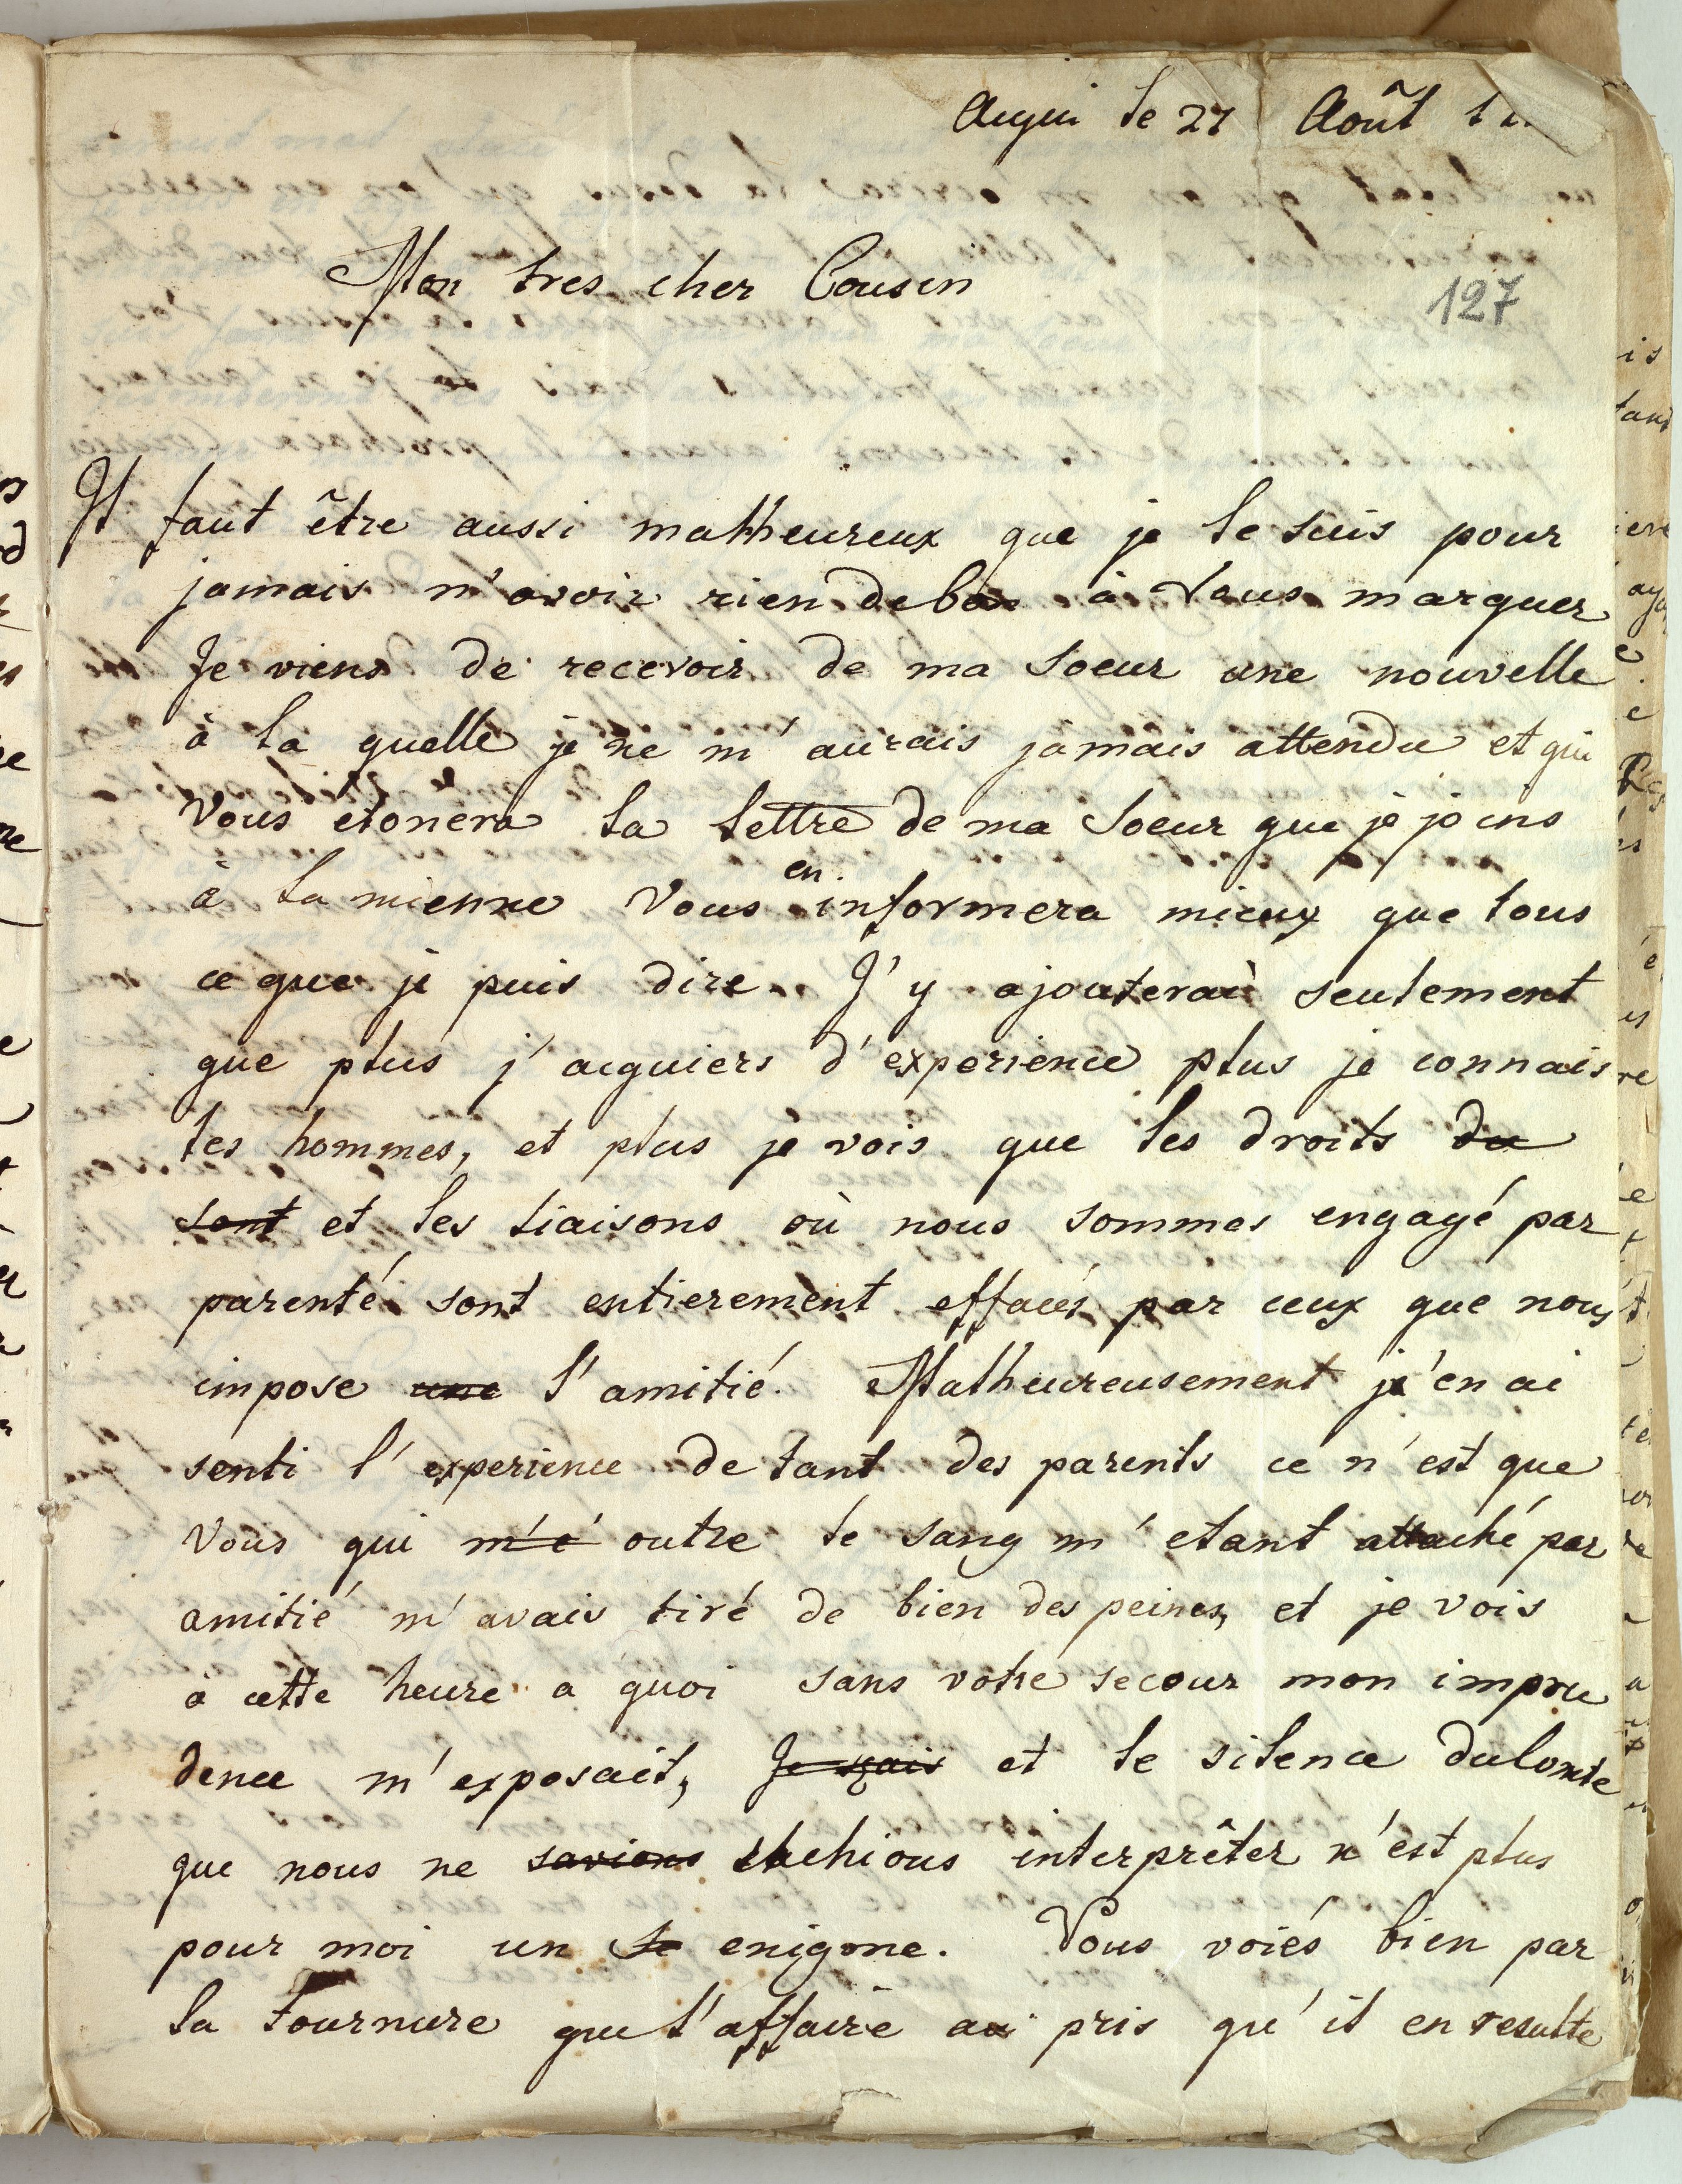 Acqui le 27 Août 1
Mon tres cher Cousin
127
Il faut être aussi malheureux que je le suis pour
jamais n'avoir rien de bon à Vous marquer
Je viens de recevoir de ma soeur une nouvelle
à la quelle je ne m'aurais jamais attendu et qui
Vous étonera la lettre de ma Soeur que je joins
à la mienne Vous en informera mieux que tous
ce que je puis dire. J'y ajouterai seulement
que plus j'acquiers d'experience plus je connais
les hommes, et plus je vois que les droits du
sont et les liaisons où nous sommes engagé par
parenté sont entierement effacés par ceux que nous
impose une l'amitié. Malheureusement j'en ai
senti l'experience de tant des parents ce n'est que
Vous qui m'é outre le sang m'etant attaché par
amitié m'avais tiré de bien des peines, et je vois
à cette heure a quoi sans votre secour mon impru
dence m'exposait, Je sçais et le silence du Comte
que nous ne savions interprêter n'est plus
pour moi un enigme. Vous voiés bien par
la tournure que l'affaire a pris qu'il en resulte